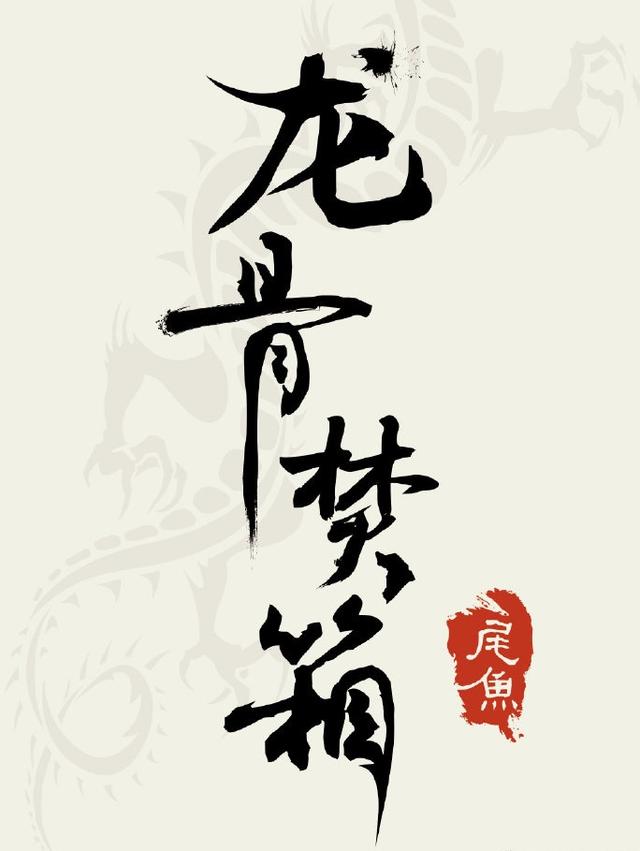 龙骨焚箱
尾鱼